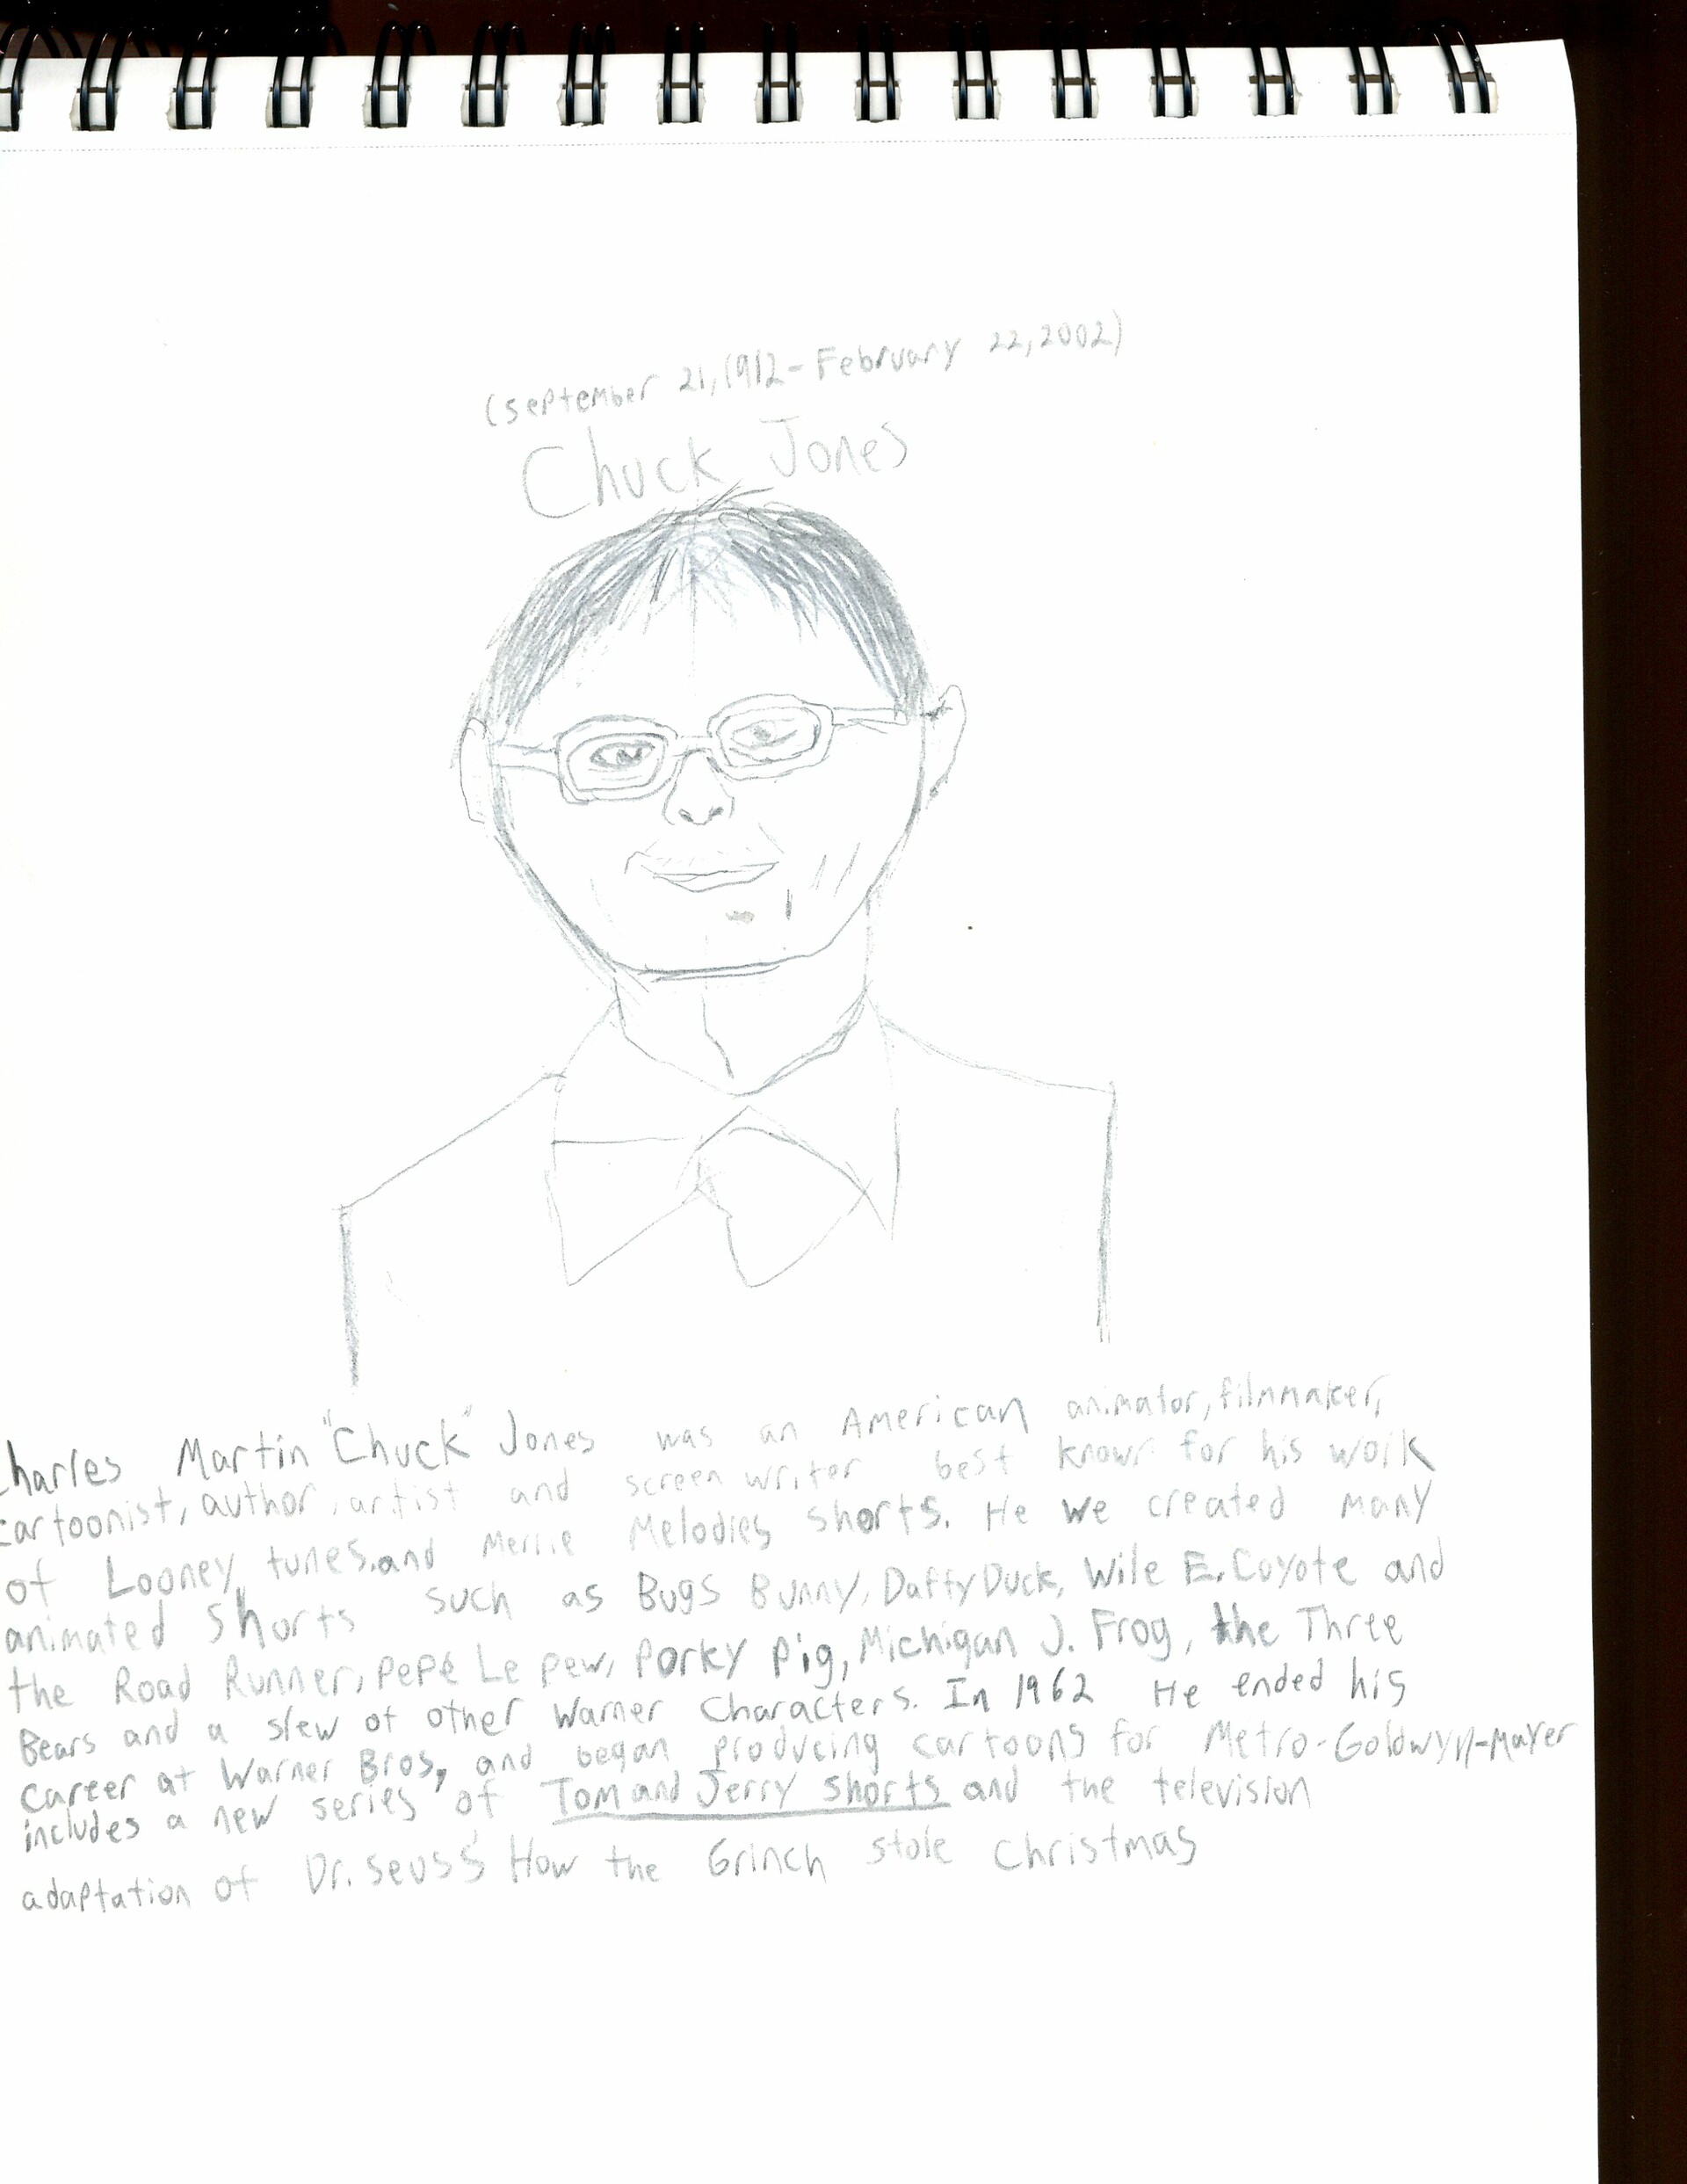 (September 21, 1912 - February 22, 2002)
Chuck Jones
Charles Martin "Chuck" Jones was an American animator, filmmaker,
cartoonist, author, artist and screen writer best known for his work
of Looney tunes and Merrie Melodies shorts. He we created many
animated shorts such as Bugs Bunny, Daffy Duck, Wile E. Coyote and
the Road Runner, Pepé Le Pew, Porky Pig, Michigan J. Frog, the Three
Bears and a slew of other Warner Characters. In 1962 He ended his
career at Warner Bros, and began producing cartoons for Metro-Goldwyn-Mayer
includes a new series of Tom and Jerry shorts and the television
adaptation of Dr. Seuss's How the Grinch stole Christmas